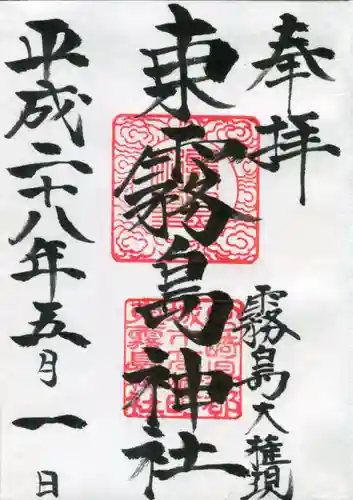 奉拝
霧島大権現
東霧島神社
平成二十八年五月一日